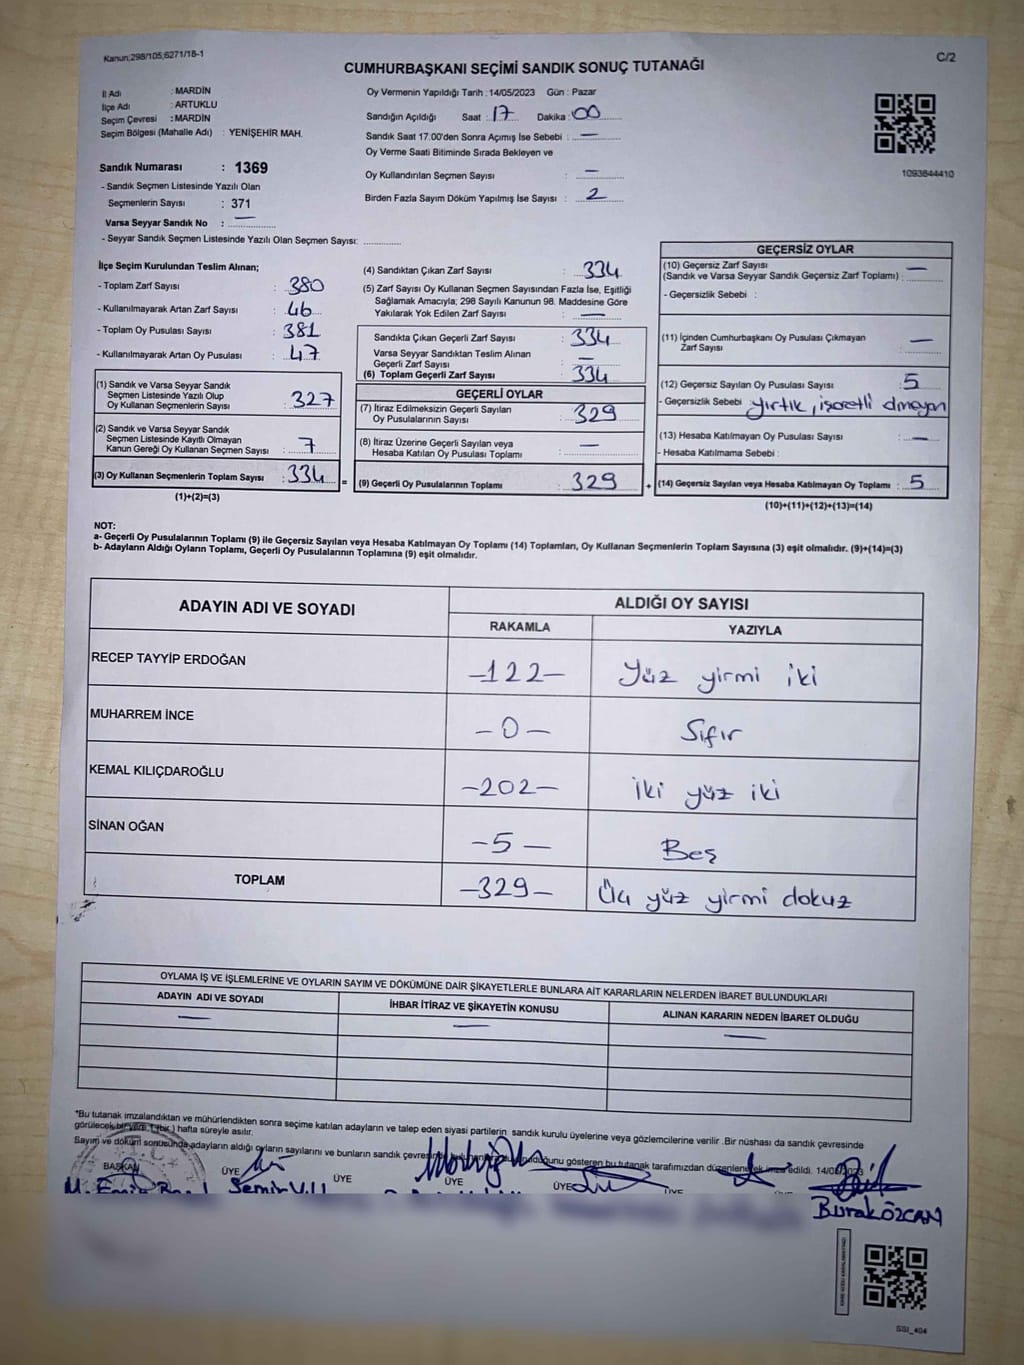 Kanun;298/105;6271/18-1
C/2
CUMHURBAŞKANI SEÇİMİ SANDIK SONUÇ TUTANAĞI
İl Adı : MARDİN
İlçe Adı : ARTUKLU
Seçim Çevresi : MARDİN
Seçim Bölgesi (Mahalle Adı) : YENİŞEHİR MAH.
Sandık Numarası : 1369
- Sandık Seçmen Listesinde Yazılı Olan
Seçmenlerin Sayısı : 371
Varsa Seyyar Sandık No : —
- Seyyar Sandık Seçmen Listesinde Yazılı Olan Seçmen Sayısı:
Oy Vermenin Yapıldığı Tarih : 14/05/2023 Gün : Pazar
Sandığın Açıldığı Saat : 17 Dakika : 00
Sandık Saat 17:00'den Sonra Açımış İse Sebebi : —
Oy Verme Saati Bitiminde Sırada Bekleyen ve
Oy Kullandırılan Seçmen Sayısı : —
Birden Fazla Sayım Döküm Yapılmış İse Sayısı : 2
1093844410
İlçe Seçim Kurulundan Teslim Alınan;
- Toplam Zarf Sayısı : 380
- Kullanılmayarak Artan Zarf Sayısı : 46
- Toplam Oy Pusulası Sayısı : 381
- Kullanılmayarak Artan Oy Pusulası : 47
(1) Sandık ve Varsa Seyyar Sandık
Seçmen Listesinde Yazılı Olup
Oy Kullanan Seçmenlerin Sayısı : 327
(2) Sandık ve Varsa Seyyar Sandık
Seçmen Listesinde Kayıtlı Olmayan
Kanun Gereği Oy Kullanan Seçmen Sayısı : 7
(3) Oy Kullanan Seçmenlerin Toplam Sayısı : 334 =
(1)+(2)=(3)
(4) Sandıktan Çıkan Zarf Sayısı : 334
(5) Zarf Sayısı Oy Kullanan Seçmen Sayısından Fazla İse, Eşitliği
Sağlamak Amacıyla; 298 Sayılı Kanunun 98. Maddesine Göre
Yakılarak Yok Edilen Zarf Sayısı : —
Sandıkta Çıkan Geçerli Zarf Sayısı : 334
Varsa Seyyar Sandıktan Teslim Alınan
Geçerli Zarf Sayısı : —
(6) Toplam Geçerli Zarf Sayısı : 334
GEÇERLİ OYLAR
(7) İtiraz Edilmeksizin Geçerli Sayılan
Oy Pusulalarının Sayısı : 329
(8) İtiraz Üzerine Geçerli Sayılan veya
Hesaba Katılan Oy Pusulası Toplamı : —
(9) Geçerli Oy Pusulalarının Toplamı : 329 +
GEÇERSİZ OYLAR
(10) Geçersiz Zarf Sayısı
(Sandık ve Varsa Seyyar Sandık Geçersiz Zarf Toplamı) : —
- Geçersizlik Sebebi :
(11) İçinden Cumhurbaşkanı Oy Pusulası Çıkmayan
Zarf Sayısı : —
(12) Geçersiz Sayılan Oy Pusulası Sayısı : 5
- Geçersizlik Sebebi yırtık, işaretli olmayan
(13) Hesaba Katılmayan Oy Pusulası Sayısı : —
- Hesaba Katılmama Sebebi :
(14) Geçersiz Sayılan veya Hesaba Katılmayan Oy Toplamı : 5
(10)+(11)+(12)+(13)=(14)
NOT:
a- Geçerli Oy Pusulalarının Toplamı (9) ile Geçersiz Sayılan veya Hesaba Katılmayan Oy Toplamı (14) Toplamları, Oy Kullanan Seçmenlerin Toplam Sayısına (3) eşit olmalıdır. (9)+(14)=(3)
b- Adayların Aldığı Oyların Toplamı, Geçerli Oy Pusulalarının Toplamına (9) eşit olmalıdır.
ADAYIN ADI VE SOYADI
ALDIĞI OY SAYISI
RAKAMLA YAZIYLA
RECEP TAYYİP ERDOĞAN -122- Yüz yirmi iki
MUHARREM İNCE -0- Sıfır
KEMAL KILIÇDAROĞLU -202- iki yüz iki
SİNAN OĞAN -5- Beş
TOPLAM -329- Üç yüz yirmi dokuz
OYLAMA İŞ VE İŞLEMLERİNE VE OYLARIN SAYIM VE DÖKÜMÜNE DAİR ŞİKAYETLERLE BUNLARA AİT KARARLARIN NELERDEN İBARET BULUNDUKLARI
ADAYIN ADI VE SOYADI İHBAR İTİRAZ VE ŞİKAYETİN KONUSU ALINAN KARARIN NEDEN İBARET OLDUĞU
— — —
*Bu tutanak imzalandıktan ve mühürlendikten sonra seçime katılan adayların ve talep eden siyasi partilerin sandık kurulu üyelerine veya gözlemcilerine verilir .Bir nüshası da sandık çevresinde
görülecek bir yere 1 (bir ) hafta süreyle asılır.
Sayım ve döküm sonusunda adayların aldığı oyların sayılarını ve bunların sandık çevresinde bulunduğunu gösteren bu tutanak tarafımızdan düzenlenerek imza edildi. 14/05/2023
BAŞKAN ÜYE ÜYE ÜYE ÜYE ÜYE
Burak ÖZCAN
SSI_404